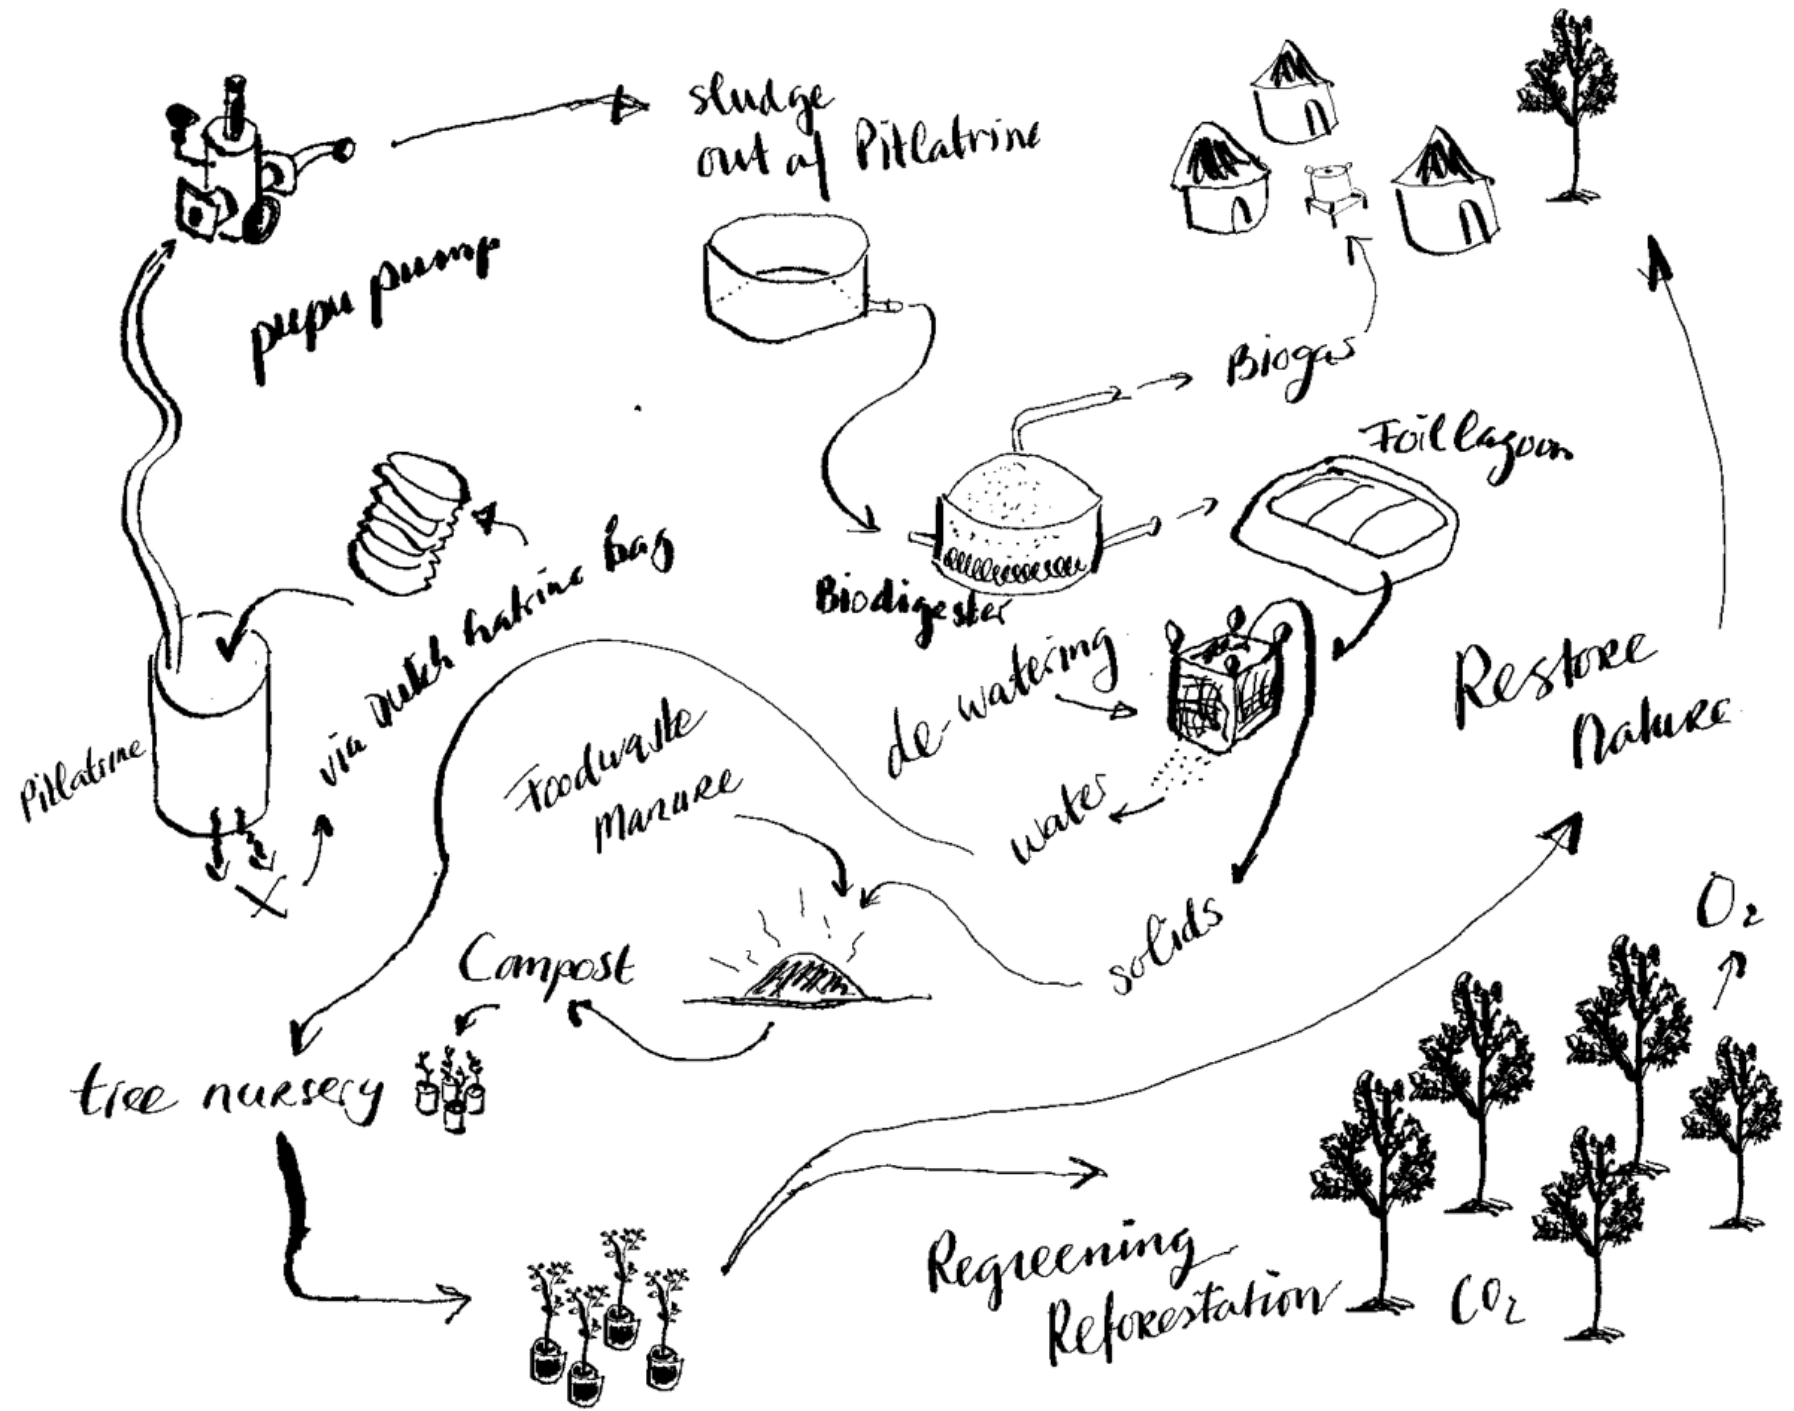 sludge
out of Pitlatrine
pupu pump
Biogas
Foil lagoon
Biodigester
via dutch hatrine bag
Pitlatrine
de-watering
water
Foodwaste
Manure
solids
Restore
Nature
Compost
tree nursery
O2
Regreening
Reforestation
CO2